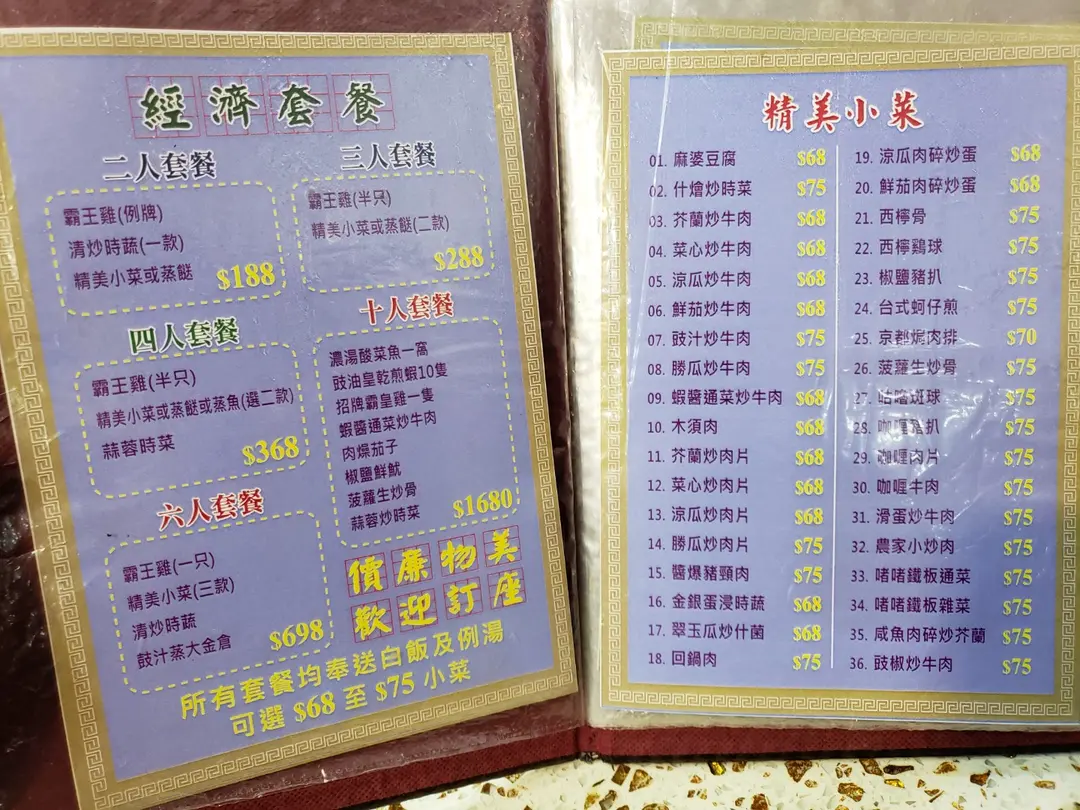 經濟套餐
二人套餐
霸王雞(例牌)
清炒時蔬(一款)
精美小菜或蒸餸 $188
三人套餐
霸王雞(半只)
精美小菜或蒸餸(二款)
$288
四人套餐
霸王雞(半只)
精美小菜或蒸餸或蒸魚(選二款)
蒜蓉時菜 $368
十人套餐
濃湯酸菜魚一窩
豉油皇乾煎蝦10隻
招牌霸皇雞一隻
蝦醬通菜炒牛肉
肉燥茄子
椒鹽鮮魷
菠蘿生炒骨
蒜蓉炒時菜 $1680
六人套餐
霸王雞(一只)
精美小菜(三款)
清炒時蔬
豉汁蒸大金倉 $698
價廉物美
歡迎訂座
所有套餐均奉送白飯及例湯
可選 $68 至 $75 小菜
精美小菜
01. 麻婆豆腐 $68
02. 什燴炒時菜 $75
03. 芥蘭炒牛肉 $68
04. 菜心炒牛肉 $68
05. 涼瓜炒牛肉 $68
06. 鮮茄炒牛肉 $68
07. 豉汁炒牛肉 $75
08. 勝瓜炒牛肉 $75
09. 蝦醬通菜炒牛肉 $68
10. 木須肉 $68
11. 芥蘭炒肉片 $68
12. 菜心炒肉片 $68
13. 涼瓜炒肉片 $68
14. 勝瓜炒肉片 $75
15. 醬爆豬頸肉 $75
16. 金銀蛋浸時蔬 $68
17. 翠玉瓜炒什菌 $68
18. 回鍋肉 $75
19. 涼瓜肉碎炒蛋 $68
20. 鮮茄肉碎炒蛋 $68
21. 西檸骨 $75
22. 西檸鷄球 $75
23. 椒鹽豬扒 $75
24. 台式蚵仔煎 $75
25. 京都焗肉排 $70
26. 菠蘿生炒骨 $75
27. 咕嚕斑球 $75
28. 咖喱豬扒 $75
29. 咖喱肉片 $75
30. 咖喱牛肉 $75
31. 滑蛋炒牛肉 $75
32. 農家小炒肉 $75
33. 啫啫鐵板通菜 $75
34. 啫啫鐵板雜菜 $75
35. 咸魚肉碎炒芥蘭 $75
36. 豉椒炒牛肉 $75